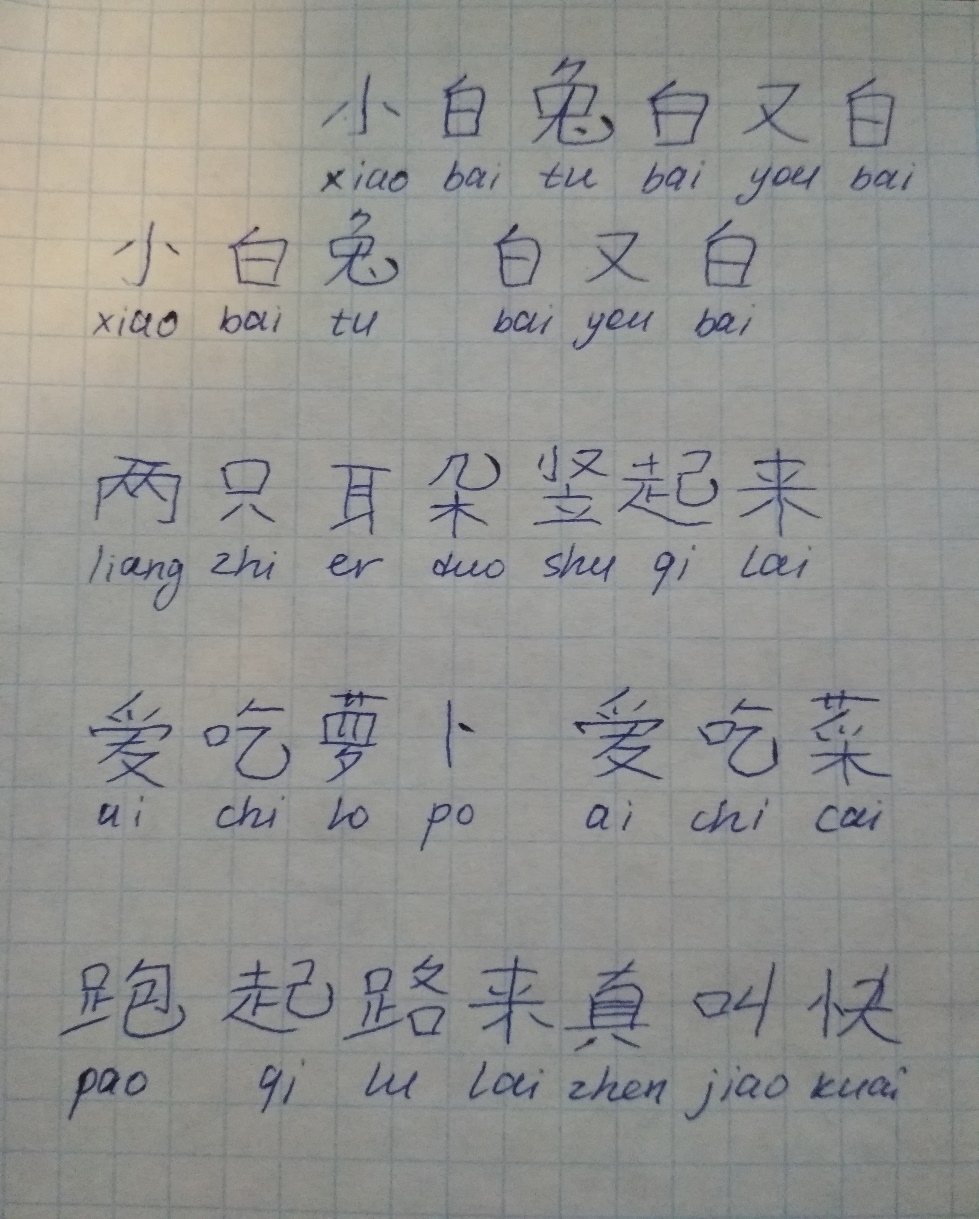 小白兔白又白
xiao bai tu bai you bai
小白兔 白又白
xiao bai tu bai you bai
两只耳朵竖起来
liang zhi er duo shu qi lai
爱吃萝卜 爱吃菜
ai chi lo po ai chi cai
跑起路来真叫快
pao qi lu lai zhen jiao kuai